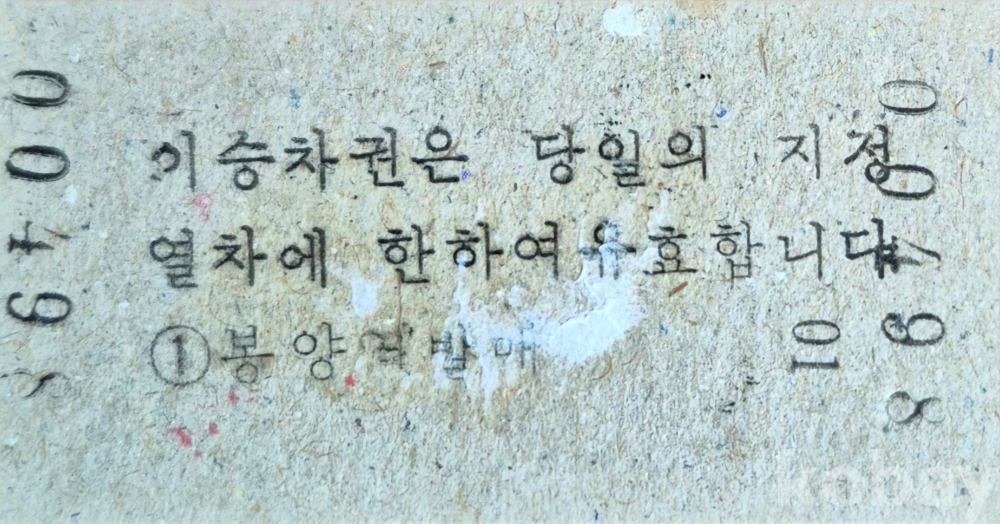 이승차권은 당일의 지정
열차에 한하여유효합니다
①봉양역발매
10
00498
00498
kobay